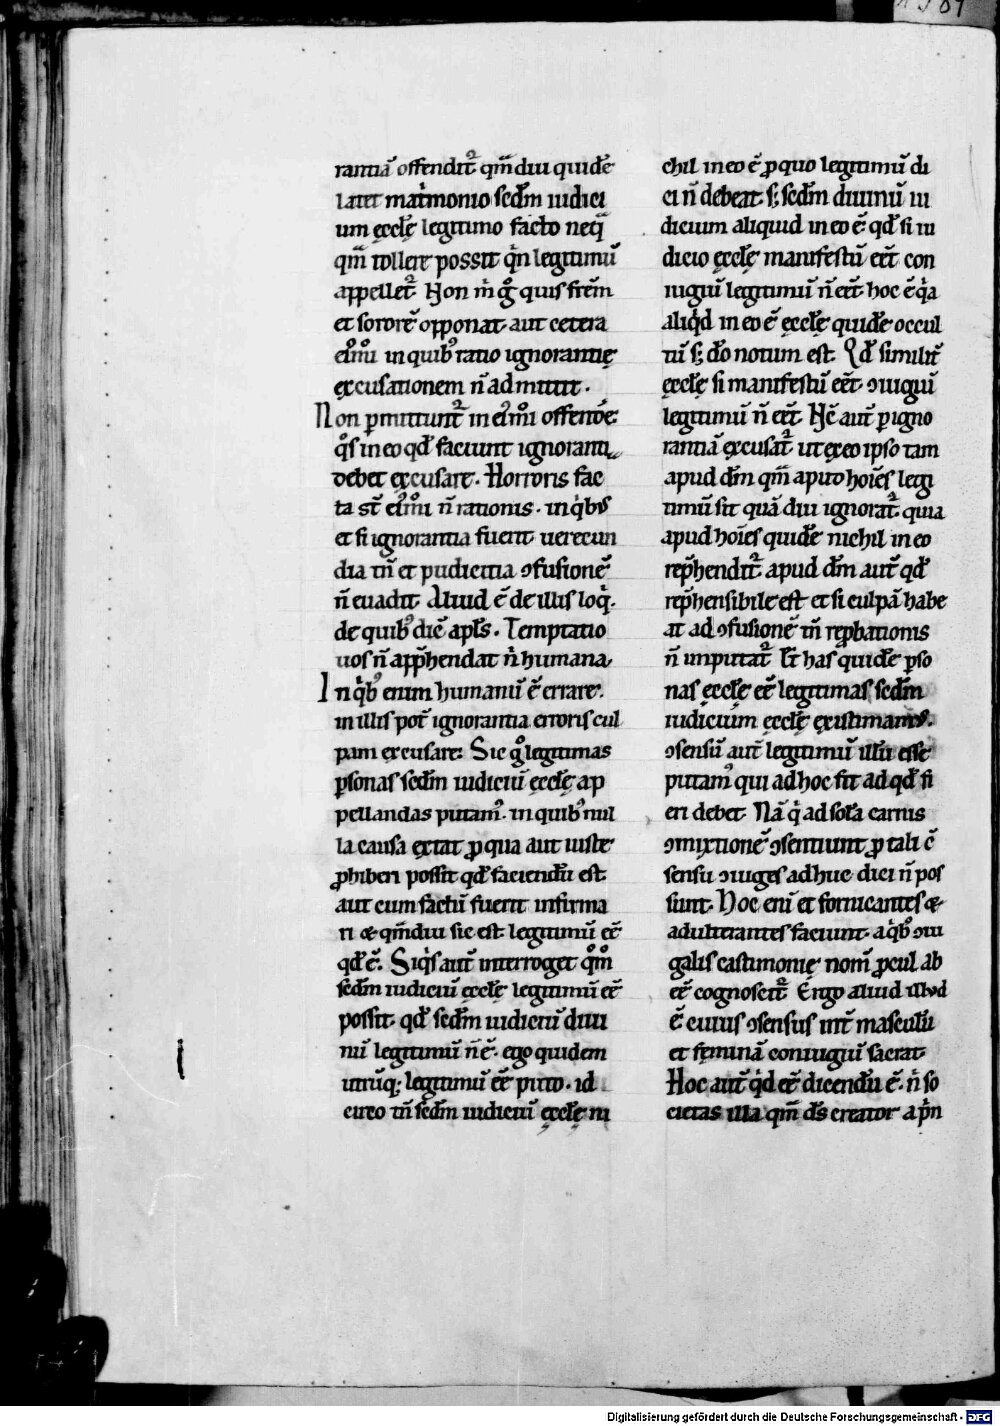 rantiā offendit᷑ qm̄diu quidē
latet mat'monio scd̄m iudici
um ęccl̄ę legitimo facto neq̄
qm̄ tollere possit qn̄ legitimū
appellet᷑. Non m̄ g° quis frēm
et sororē opponat aut cetera
ei9m°i in quib9 ratio ignorantię
ęxcusationem n̄ admittit.
Non p̱mittunt᷑ in ei9m°i offendē:
q°s in eo qd̄ faciunt ignoranti
debet ęxcusare. Horroris fac
ta st̄ ei9m°i n̄ rationis. in q'b9
et si ignorantia fuerit uerecun
dia tn̄ et pudicitia ↄfusionē
n̄ euadit. Aliud ē de illis loq'.
de quib9 dic̄ apl̄s. Temptatio
uos n̄ app̄hendat n' humana.
In q'b9 enim humanū ē errare.
in illis pot̄ ignorantia erroris cul
pam excusare. Sic g° legitimas
p̱sonas scd̄m iudiciū ęccl̄ę ap
pellandas putam9. in quib9 nul
la causa extat ꝓ qua aut iuste
ꝓhiberi possit qd̄ faciendū est
aut cum factū fuerit infirma
ri & qm̄diu sic est legitimū eē
qd̄ ē. Siq's aut̄ interroget q°m°
scd̄m iudiciū ęccl̄ę legitimū eē
possit. qd̄ scd̄m iudiciū diui
nū legitimū n̄ ē. ego quidem
utrūq; legitimū eē puto. id
circo tn̄ scd̄m iudiciū ęccl̄ę ni
chil in eo ē ꝓ quo legitimū di
ci n̄ debeat. s; scd̄m diuinū iu
dicium aliquid in eo ē qd̄ si iu
dicio ęccl̄ę manifestū eēt con
iugiū legitimū n̄ eēt. hoc ē q'a
aliq'd in eo ē ęccl̄ę quidē occul
tū s; dō notum est. Qd̄ similit̄
ęccl̄ę si manifestū eēt ↄiugiū
legitimū n̄ eēt. Hc̄ aut̄ p̱ igno
rantiā ęxcusat᷑. ut ex eo ipso tam
apud dm̄ qm̄ apud hoīes legi
timū sit quādiu ignorat᷑. quia
apud hoīes quidē nichil in eo
rep̄hendit᷑. apud dm̄ aut̄ qd̄
rep̄hensibile est et si culpā habe
at ad ↄfusionē tn̄ rep̱bationis
n̄ imputat᷑. Et has quidē p̱so
nas ęccl̄ę eē legitimas scd̄m
iudicium ęccl̄ę ęxistimam9.
ↄsensū aut̄ legitimū illū esse
putam9 qui ad hoc fit ad qd̄ fi
eri debet. Nā q' ad sola carnis
ↄmixtionē ↄsentiunt ꝓ tali ↄ̄
sensu ↄiuges adhuc dici n̄ pos
sunt. Hoc eni et fornicantes &
adulterantes faciunt. a q'b9 ↄiu
galis castimonie nom̄ ꝓcul ab
eē cognoscit᷑. Ergo aliud illud
ē cuius ↄsensus int̄ masculū
et feminā coniugiū sacrat.
Hoc aut̄ q'd eē dicendū ē. n' so
cietas illa qm̄ ds̄ creator a p'n